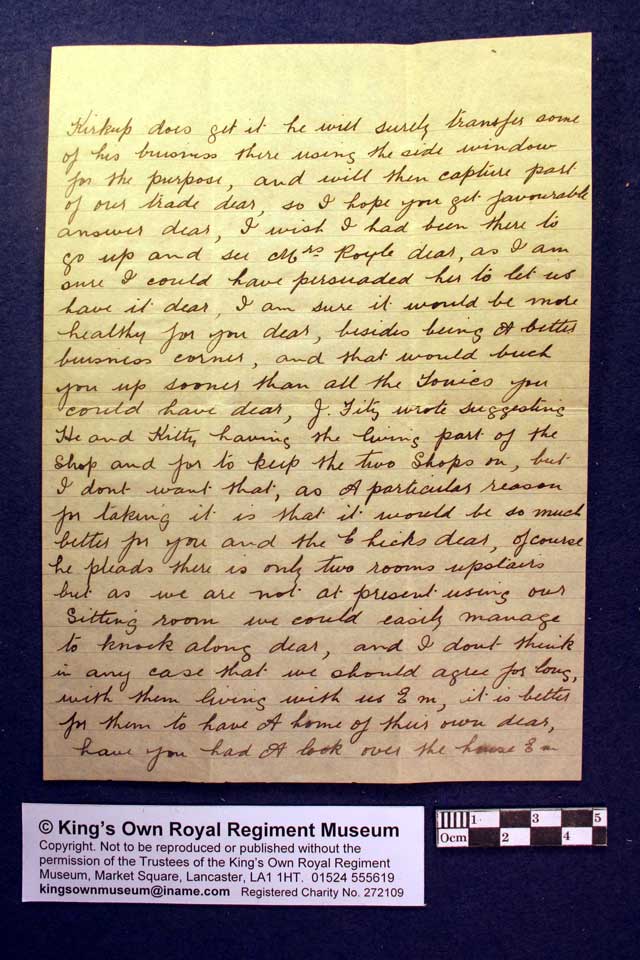 Kirkup does get it he will surely transfer some
of his buisness there using the side window
for the purpose, and will then capture part
of our trade dear, so I hope you get favourable
answer dear, I wish I had been there to
go up and see Mrs Royle dear, as I am
sure I could have persuaded her to let us
have it dear, I am sure it would be more
healthy for you dear, besides being A better
buisness corner, and that would buck
you up sooner than all the Tonics you
could have dear, J. Fitz wrote suggesting
He and Kitty having the living part of the
Shop and for to keep the two Shops on, but
I dont want that, as A particular reason
for taking it is that it would be so much
better for you and the Chicks dear, ofcourse
he pleads there is only two rooms upstairs
but as we are not at present using our
Sitting room we could easily manage
to knock along dear, and I dont think
in any case that we should agree for long,
with them living with us Em, it is better
for them to have A home of their own dear,
have you had A look over the house Em
© King's Own Royal Regiment Museum
Copyright. Not to be reproduced or published without the
permission of the Trustees of the King's Own Royal Regiment
Museum, Market Square, Lancaster, LA1 1HT. 01524 555619
kingsownmuseum@iname.com Registered Charity No. 272109
1 3 5
0cm 2 4